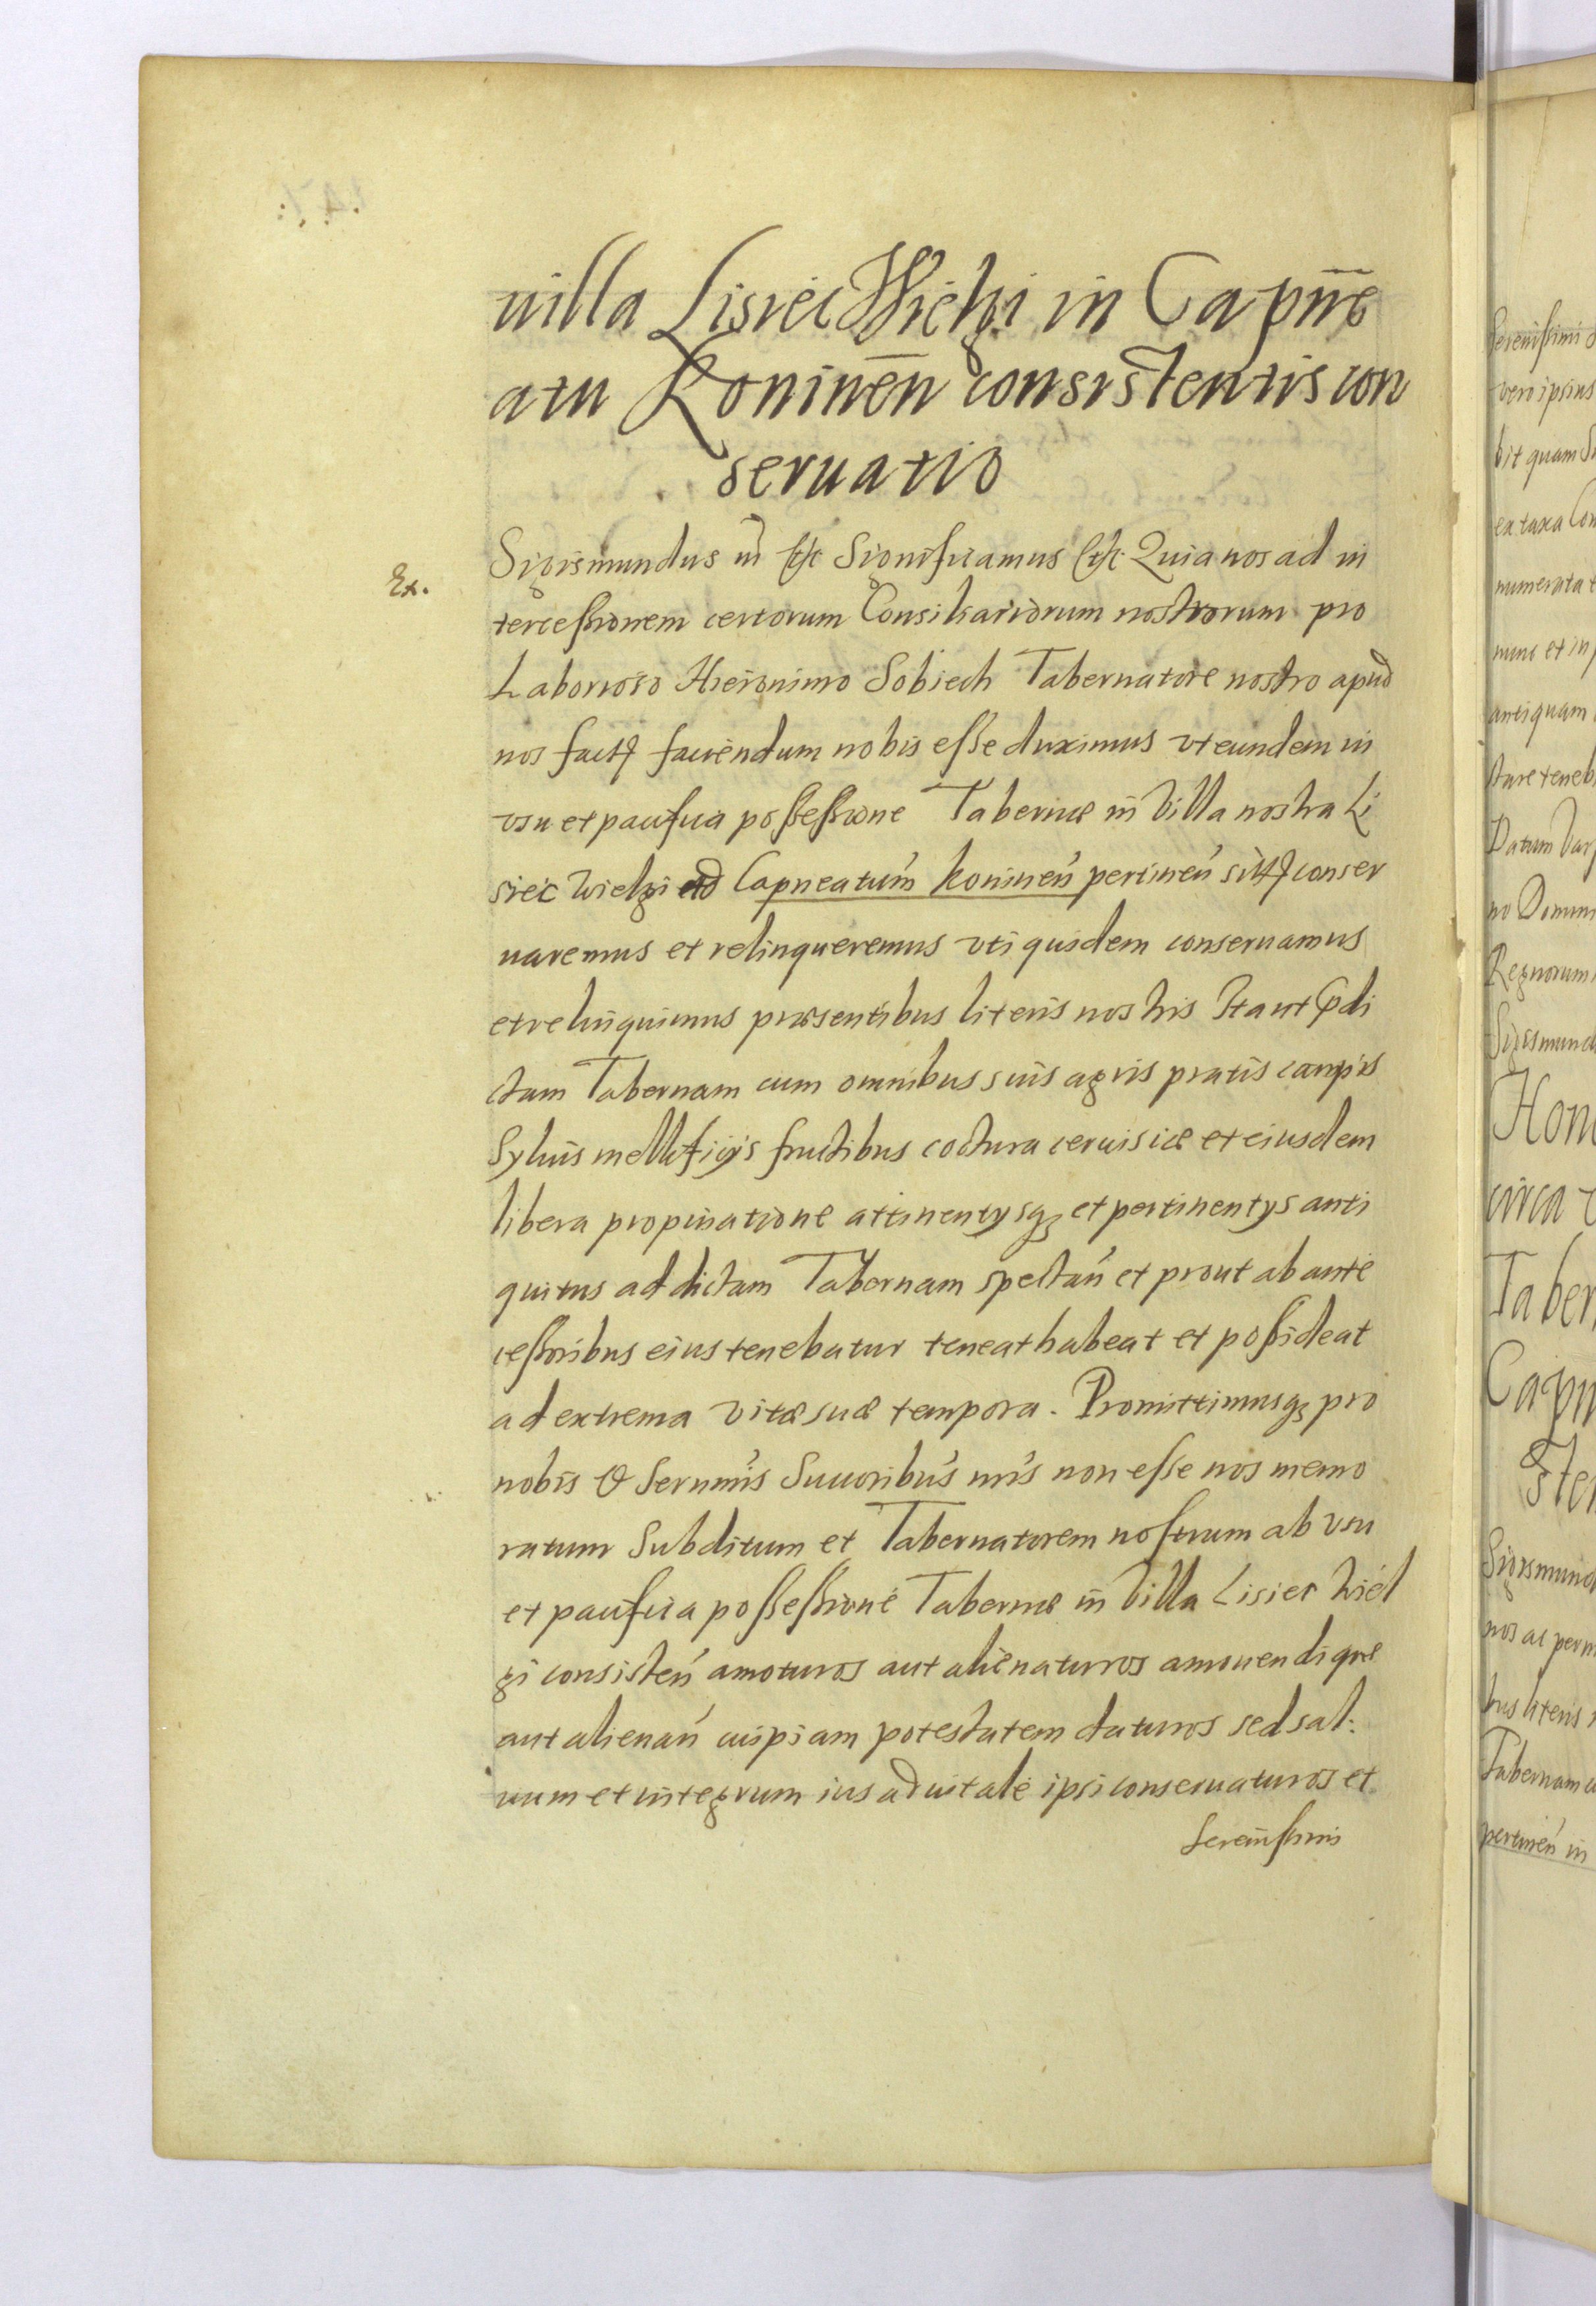 uilla Lisiec Wielgi in Capnē
atu Koninēn consistentis con
seruatio
Ex.
Sigismundus III etc Significamus etc Quia nos ad in
tercessionem certorum Consiliariorum nostrorum pro
Laborioso Hieronimo Sobiech Tabernatore nostro apud
nos factą faciendum nobis esse duximus vt eundem in
vsu et pacifica possessione Tabernæ in Villa nostra Li
siec Wielgi ad Capneatum koninen pertinen sitą conser
uaremus et relinqueremus vti quidem conseruamus
et relinquimus præsentibus literis nostris Ita ut pdi
ctam Tabernam cum omnibus suis agris pratis campis
Syluis mellificijs fructibus coctura ceruisiæ et eiusdem
libera propinatione attinentysq; et pertinentys anti
quitus ad dictam Tabernam spectan et prout ab ante
cessoribus eius tenebatur teneat habeat et possideat
ad extrema vitæ suæ tempora. Promittimusq; pro
nobis & Sernmis Succoribus nris non esse nos memo
ratum Subditum et Tabernatorem nostrum ab vsu
et pacifica possessione Tabernæ in Villa Lisiec Wiel
gi consisten amoturos aut alienaturos amouendique
aut alienan cuipiam potestatem daturos sed sal:
uum et integrum ius aduitale ipsi conseruaturos et
Serenissimis
Serenissimi
vero ipsius
bit quam
ex taxa
numerata
nunc et in
antiquam
stare
Datum
no Domini
Regnorum
Sigismund
circa
Taber
Sigismund
nos ac
bus literis
Tabernam
pertinen in